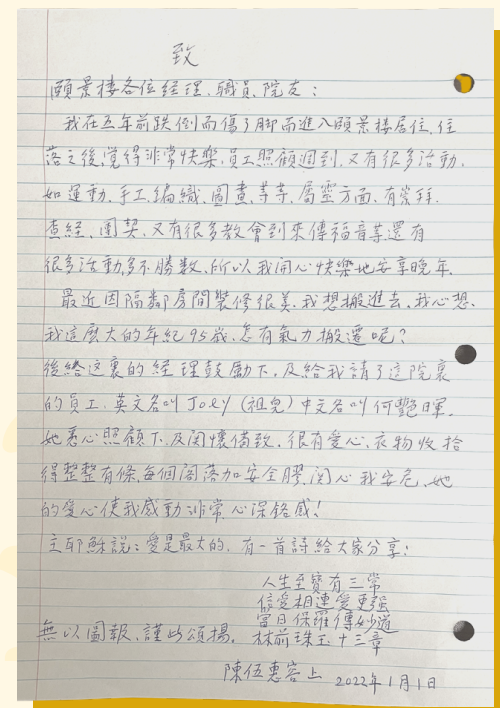 致
頤景楼各位经理、職員、院友:
我在五年前跌倒而傷了脚而進入頤景楼居住,住
落之後,覚得非常快樂,員工照顧週到,又有很多活動,
如運動、手工、編織、圖畫、等等,屬靈方面,有崇拜、
查経、團契、又有很多教會到來傳福音等還有
很多活動,多不勝數、所以我開心快樂地安享晚年。
最近因隔鄰房間裝修很美、我想搬進去、我心想、
我這麼大的年紀95歲,怎有氣力搬遷呢?
後經这裏的经理鼓勵下,及給我請了這院裏
的員工,英文名叫 Joey (祖兒) 中文名叫何艷暉。
她悉心照顧下,及関懷備致,很有愛心、衣物收拾
得整整有條,每個角落加安全膠,関心我安危、她
的愛心使我感動非常,心深銘感!
主耶穌説:愛是最大的,有一首詩給大家分享:
人生至寶有三常
信愛相連愛更强
當日保羅傳妙道
無以圖報、謹此頌揚。 林前珠玉十三章
陳伍惠容上 2022年1月1日